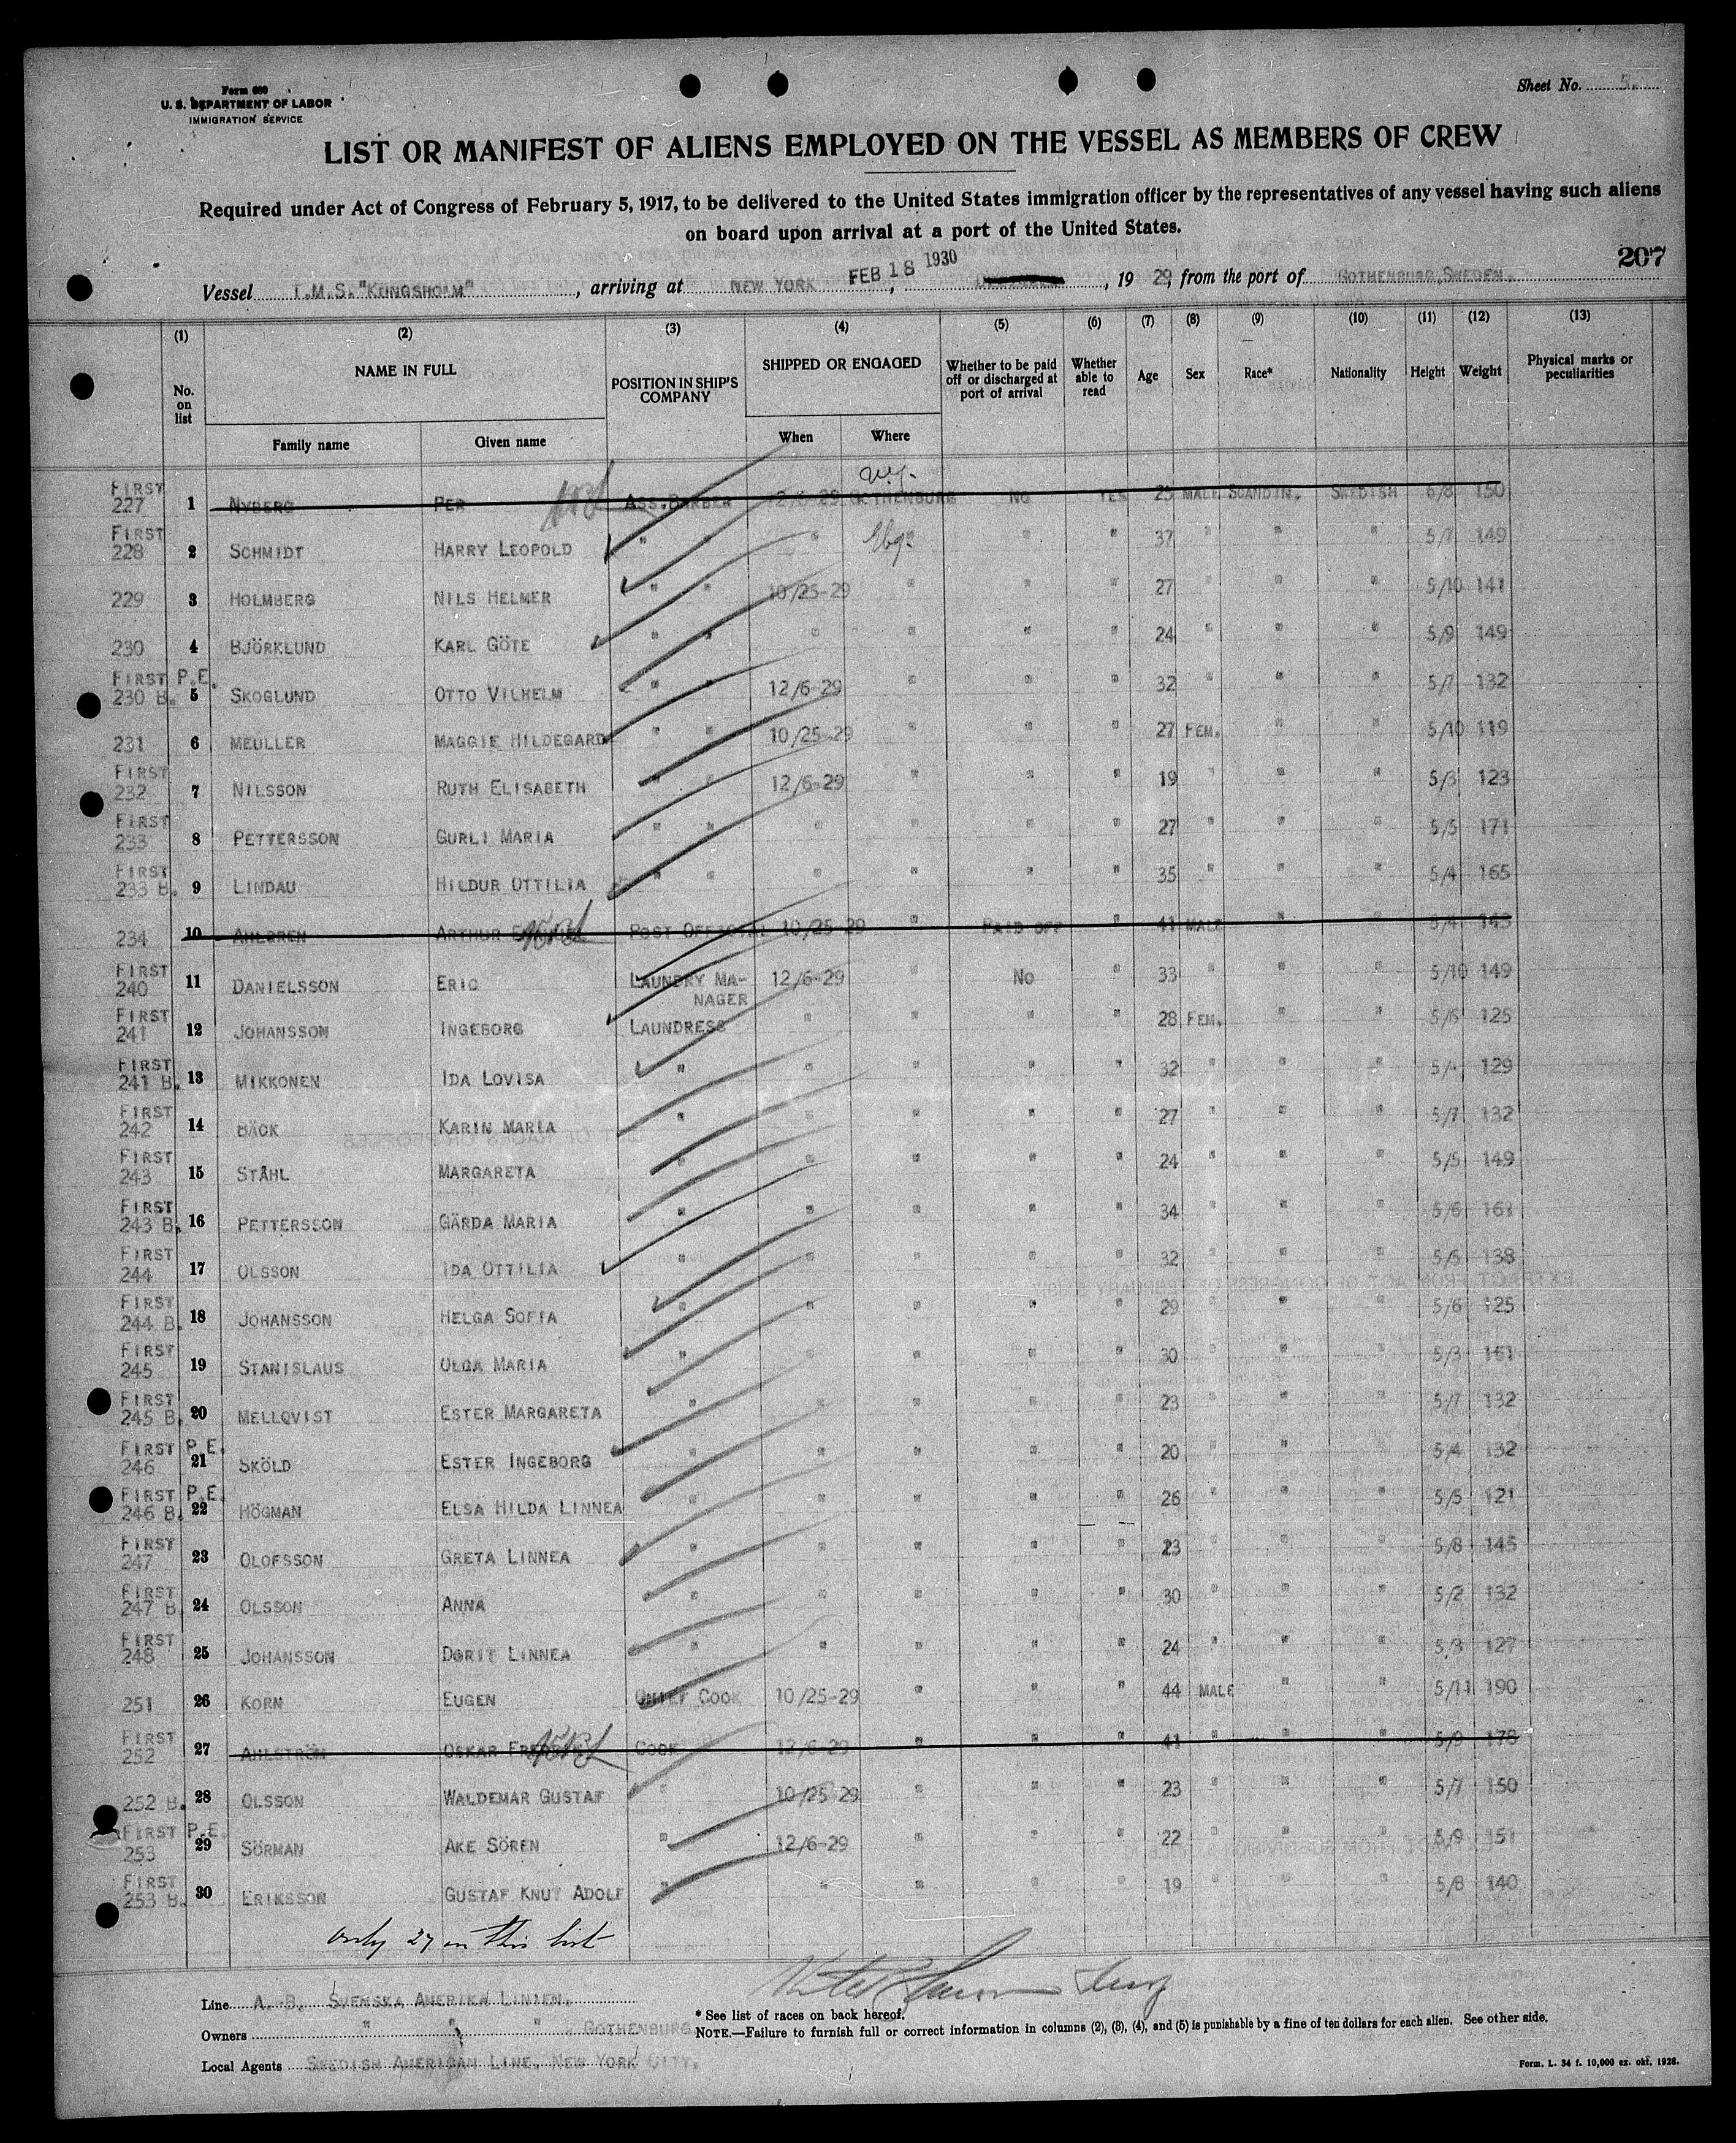 Form 680
U. S. DEPARTMENT OF LABOR
IMMIGRATION SERVICE
Sheet No. 5.
LIST OR MANIFEST OF ALIENS EMPLOYED ON THE VESSEL AS MEMBERS OF CREW
Required under Act of Congress of February 5, 1917, to be delivered to the United States immigration officer by the representatives of any vessel having such aliens
on board upon arrival at a port of the United States.
207
Vessel T.M.S. "KUNGSHOLM", arriving at NEW YORK FEB 18 1930, 1929, from the port of GOTHENBURG, SWEDEN.
(1) (2) (3) (4) (5) (6) (7) (8) (9) (10) (11) (12) (13)
No. on list NAME IN FULL POSITION IN SHIP'S COMPANY SHIPPED OR ENGAGED Whether to be paid off or discharged at port of arrival Whether able to read Age Sex Race* Nationality Height Weight Physical marks or peculiarities
Family name Given name When Where
N.Y.
FIRST 227 1 NYBERG PER ASS.BARBER 12/6-29 GOTHENBURG NO YES 25 MALE SCANDIN. SWEDISH 6/8 150
FIRST 228 2 SCHMIDT HARRY LEOPOLD " " " Gbg. " " 37 " " " 5/7 149
229 3 HOLMBERG NILS HELMER " " 10/25-29 " " " 27 " " " 5/10 141
230 4 BJÖRKLUND KARL GÖTE " " " " " " 24 " " " 5/9 149
FIRST P.E. 230 B. 5 SKOGLUND OTTO VILHELM " " 12/6-29 " " " 32 " " " 5/7 132
231 6 MEULLER MAGGIE HILDEGARD " " 10/25-29 " " " 27 FEM. " " 5/10 119
FIRST 232 7 NILSSON RUTH ELISABETH " " 12/6-29 " " " 19 " " " 5/3 123
FIRST 233 8 PETTERSSON GURLI MARIA " " " " " " 27 " " " 5/5 171
FIRST 233 B. 9 LINDAU HILDUR OTTILIA " " " " " " 35 " " " 5/4 165
234 10 AHLGREN ARTHUR POST 10/25-29 " PAID OFF " 41 MALE " " 5/4 143
FIRST 240 11 DANIELSSON ERIC LAUNDRY MA-NAGER 12/6-29 " NO " 33 " " " 5/10 149
FIRST 241 12 JOHANSSON INGEBORG LAUNDRESS " " " " 28 FEM. " " 5/6 125
FIRST 241 B. 13 MIKKONEN IDA LOVISA " " " " " 32 " " " 5/ 129
FIRST 242 14 BÄCK KARIN MARIA " " " " " 27 " " " 5/7 132
FIRST 243 15 STÅHL MARGARETA " " " " " 24 " " " 5/5 149
FIRST 243 B. 16 PETTERSSON GÄRDA MARIA " " " " " 34 " " " 5/6 161
FIRST 244 17 OLSSON IDA OTTILIA " " " " " 32 " " " 5/5 138
FIRST 244 B. 18 JOHANSSON HELGA SOFIA " " " " " 29 " " " 5/6 125
FIRST 245 19 STANISLAUS OLGA MARIA " " " " " 30 " " " 5/3 161
FIRST 245 B. 20 MELLQVIST ESTER MARGARETA " " " " " 23 " " " 5/7 132
FIRST P.E. 246 21 SKÖLD ESTER INGEBORG " " " " " 20 " " " 5/4 132
FIRST P.E. 246 B. 22 HÖGMAN ELSA HILDA LINNEA " " " " " 26 " " " 5/5 121
FIRST 247 23 OLOFSSON GRETA LINNEA " " " " " 23 " " " 5/8 145
FIRST 247 B 24 OLSSON ANNA " " " " " 30 " " " 5/2 132
FIRST 248 25 JOHANSSON DORIT LINNEA " " " " " 24 " " " 5/3 127
251 26 KORN EUGEN CHIEF COOK 10/25-29 " " " 44 MALE " " 5/11 190
FIRST 252 27 AHLSTRÖM OSKAR COOK 12/6-29 " " " 41 " " " 5/9 178
252 B. 28 OLSSON WALDEMAR GUSTAF " 10/25-29 " " " 23 " " " 5/7 150
FIRST P.E. 253 29 SÖRMAN AKE SÖREN " 12/6-29 " " " 22 " " " 5/9 151
FIRST 253 B. 30 ERIKSSON GUSTAF KNUT ADOLF " " " " " 19 " " " 5/8 140
only 27 on this list
Line A. B. SVENSKA AMERIKA LINIEN.
* See list of races on back hereof.
Owners " " " GOTHENBURG
NOTE.—Failure to furnish full or correct information in columns (2), (3), (4), and (5) is punishable by a fine of ten dollars for each alien. See other side.
Local Agents SWEDISH AMERICAN LINE, NEW YORK CITY.
Form. L. 34 f. 10,000 ex. okt. 1928.